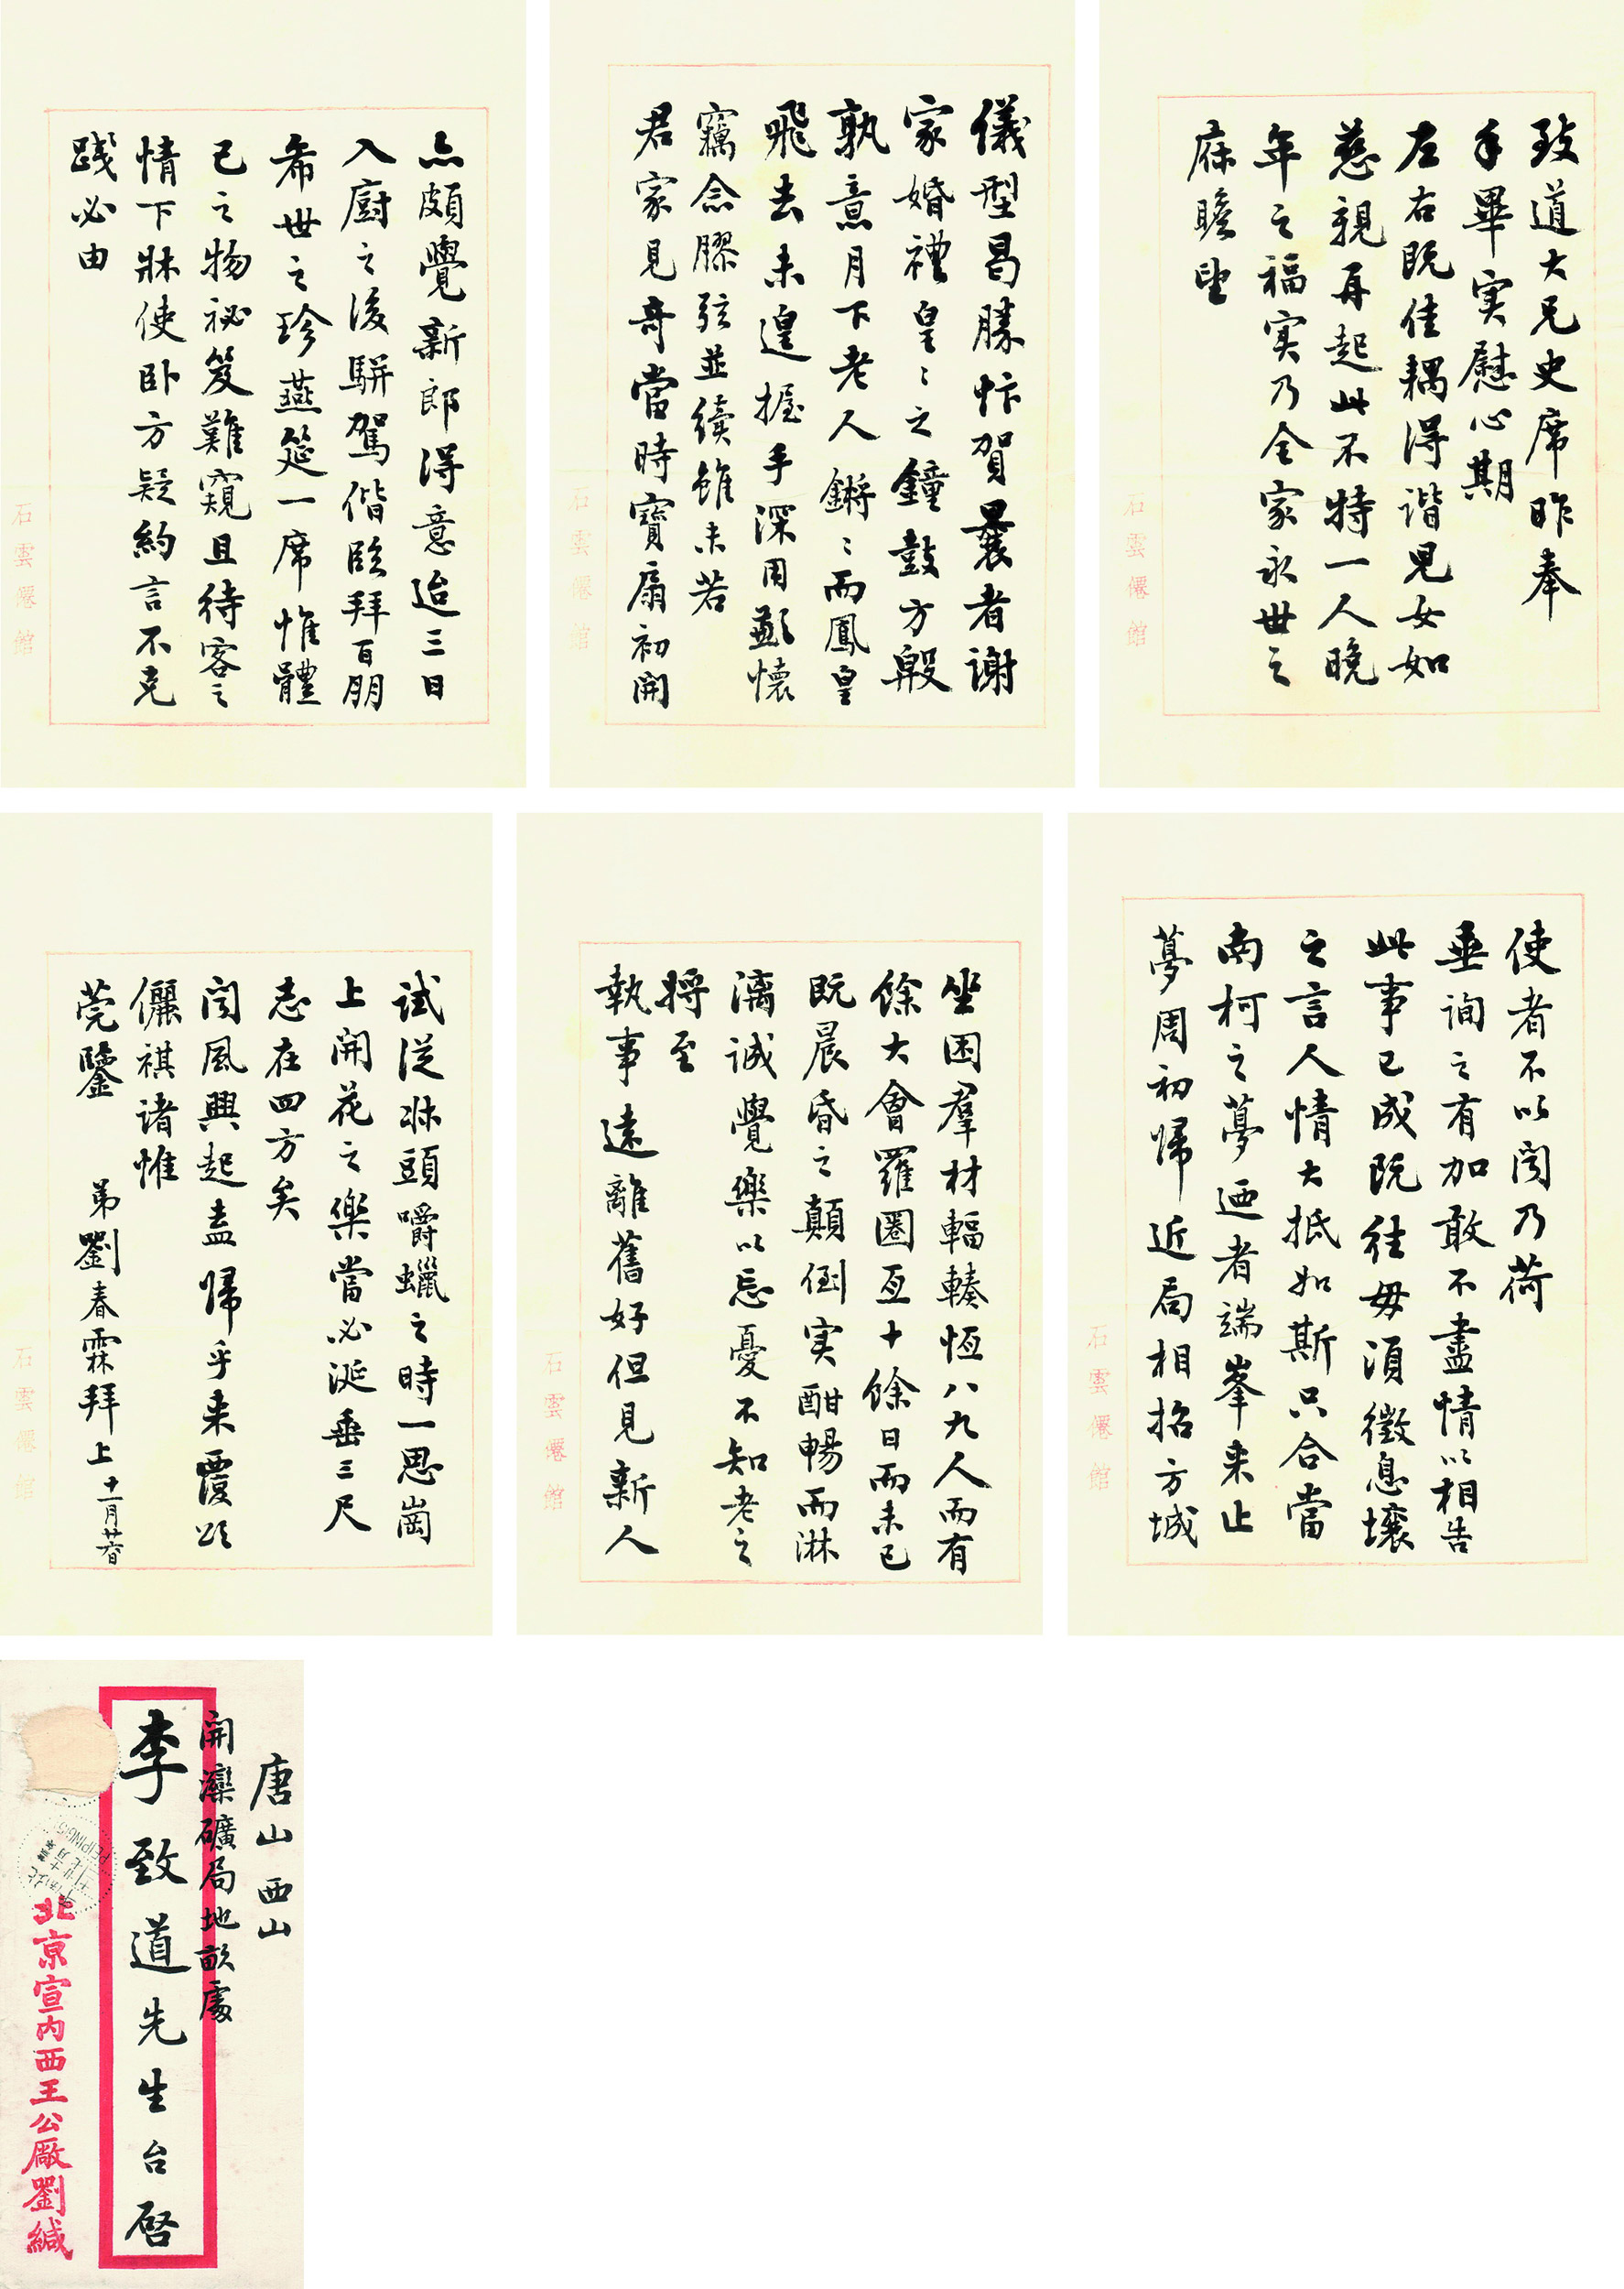 致道大兄史席昨奉
手畢实慰心期
左右既佳耦得谐兒女如
慈親再起此不特一人晚
年之福実乃全家永世之
庥瞻望
石雲僊館
儀型曷勝忭賀曩者謝
家婚禮皇〻之鐘鼓方殷
孰意月下老人鏘〻而鳳皇
飛去未遑握手深用歉懷
竊念膠弦並續雖未若
君家見奇當時寶扇初開
石雲僊館
亦頗覺新郎得意迨三日
入廚之後駢駕偕臨拜百朋
希世之珍燕筵一席惟體
己之物祕笈難窺且待客之
情下牀使卧方疑約言不克
踐必由
石雲僊館
使者不以闻乃荷
垂詢之有加敢不盡情以相告
此事已成既往毋須徵息壤
之言人情大抵如斯只合當
南柯之夢迺者端峯来止
夢周初歸近局相招方城
石雲僊館
坐困羣材輻輳恆八九人而有
餘大會羅圈亙十餘日而未已
既晨昏之顛倒实酣暢而淋
漓誠覺樂以忘憂不知老之
将至
執事遠離舊好但見新人
石雲僊館
試從牀頭嚼蠟之時一思崗
上開花之樂當必涎垂三尺
志在四方矣
闻風興起盍歸乎来覆頌
儷祺诸惟
莞鑒
弟劉春霖拜上十一月廿香
石雲僊館
唐山西山
開灤礦局地畝處
李致道先生台啓
北京宣内西王公廠劉緘
PEIPING